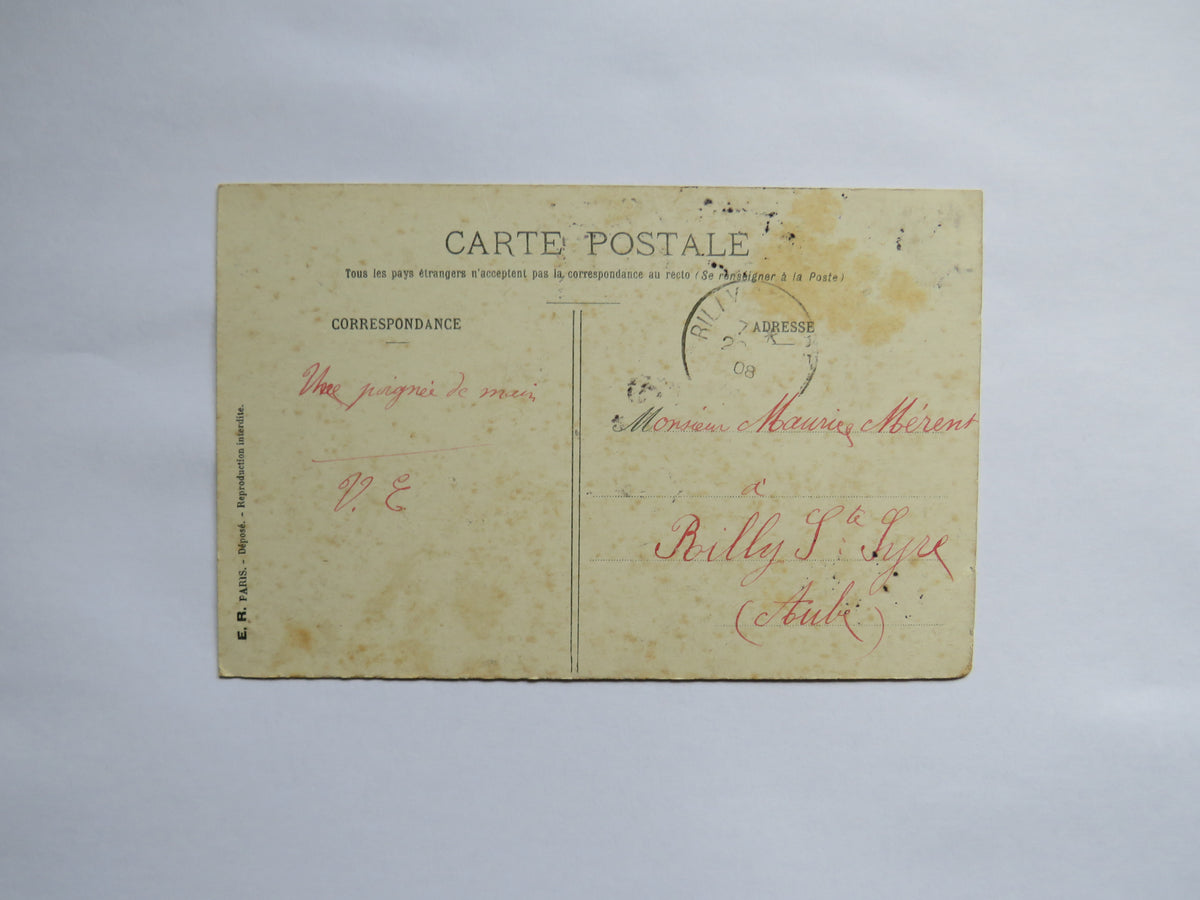 CARTE POSTALE
Tous les pays étrangers n'acceptent pas la correspondance au recto (Se renseigner à la Poste)
CORRESPONDANCE
ADRESSE
RILLY
7 *
08
Une poignée de main
V. E
Monsieur Maurice Mérent
à
Rilly Ste Syre
(Aube)
E. R. PARIS. - Déposé. - Reproduction interdite.